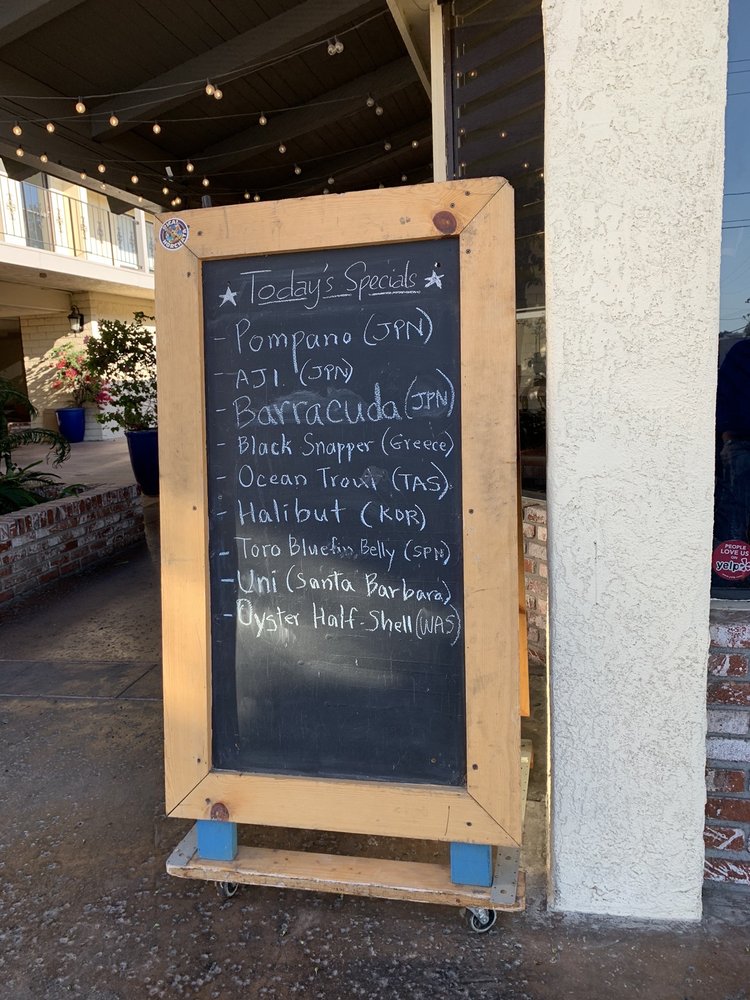 ☆ Today's Specials ☆
- Pompano (JPN)
- AJI. (JPN)
- Barracuda (JPN)
- Black Snapper (Greece)
- Ocean Trout (TAS)
- Halibut (KOR)
- Toro Bluefin Belly (SPN)
- Uni (Santa Barbara)
- Oyster Half-Shell (WAS)
PEOPLE
LOVE US
ON
yelp